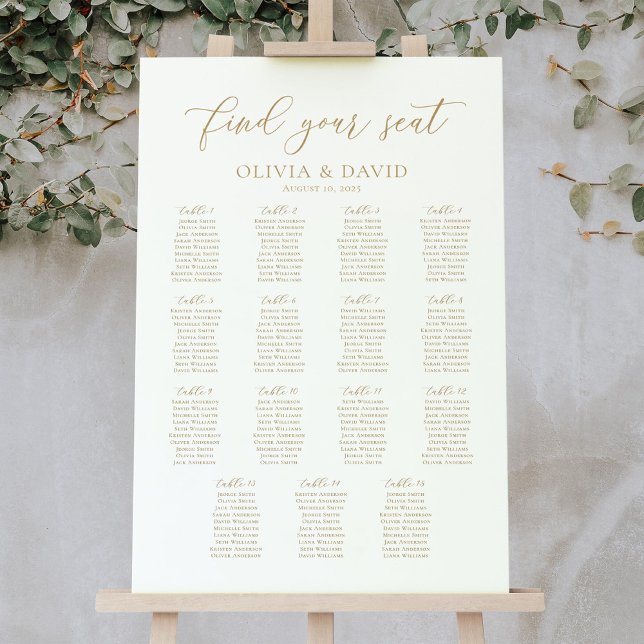 find your seat
OLIVIA & DAVID
August 10, 2025
table 1
Jeorge Smith
Olivia Smith
Jack Anderson
Sarah Anderson
David Williams
Michelle Smith
Liana Williams
Seth Williams
Kristen Anderson
Oliver Anderson
table 2
Kristen Anderson
Oliver Anderson
Michelle Smith
Jeorge Smith
Olivia Smith
Jack Anderson
Sarah Anderson
Liana Williams
Seth Williams
David Williams
table 3
Jeorge Smith
Olivia Smith
Seth Williams
Kristen Anderson
Oliver Anderson
David Williams
Michelle Smith
Liana Williams
Jack Anderson
Sarah Anderson
table 4
Kristen Anderson
Oliver Anderson
David Williams
Michelle Smith
Jack Anderson
Sarah Anderson
Liana Williams
Jeorge Smith
Olivia Smith
Seth Williams
table 5
Kristen Anderson
Oliver Anderson
Michelle Smith
Jeorge Smith
Olivia Smith
Jack Anderson
Sarah Anderson
Liana Williams
Seth Williams
David Williams
table 6
table 7
table 8
Jeorge Smith
Olivia Smith
Seth Williams
Kristen Anderson
Oliver Anderson
David Williams
Michelle Smith
Liana Williams
Jack Anderson
Sarah Anderson
table 9
Sarah Anderson
David Williams
Michelle Smith
Liana Williams
Seth Williams
Kristen Anderson
Oliver Anderson
Jeorge Smith
Olivia Smith
Jack Anderson
table 10
Jack Anderson
Sarah Anderson
Liana Williams
Seth Williams
David Williams
Kristen Anderson
Oliver Anderson
Michelle Smith
Jeorge Smith
Olivia Smith
table 11
Seth Williams
Kristen Anderson
Oliver Anderson
David Williams
Michelle Smith
Liana Williams
Jack Anderson
Sarah Anderson
Jeorge Smith
Olivia Smith
table 12
David Williams
Michelle Smith
Jack Anderson
Sarah Anderson
Liana Williams
Jeorge Smith
Olivia Smith
Seth Williams
Kristen Anderson
Oliver Anderson
table 13
Jeorge Smith
Olivia Smith
Jack Anderson
Sarah Anderson
David Williams
Michelle Smith
Liana Williams
Seth Williams
Kristen Anderson
Oliver Anderson
table 14
Kristen Anderson
Oliver Anderson
Michelle Smith
Jeorge Smith
Olivia Smith
Jack Anderson
Sarah Anderson
Liana Williams
Seth Williams
David Williams
table 15
Jeorge Smith
Olivia Smith
Seth Williams
Kristen Anderson
Oliver Anderson
David Williams
Michelle Smith
Liana Williams
Jack Anderson
Sarah Anderson